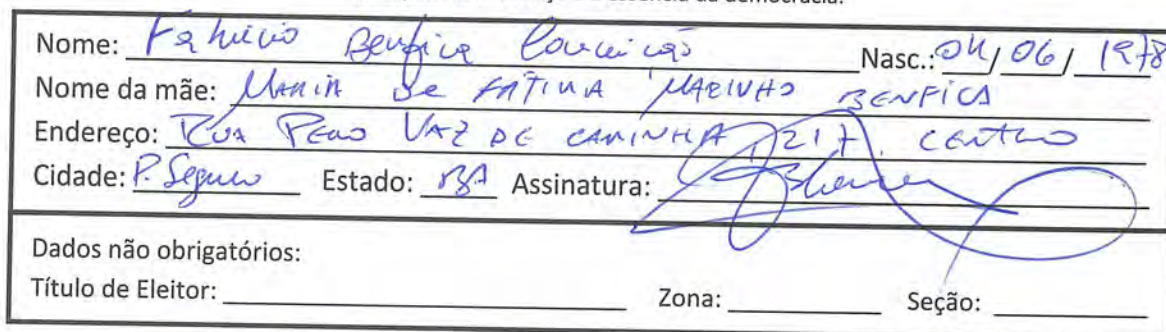 essência da democracia.
Nome: Fabricio Benfica Nasc.: 04/06/1978
Nome da mãe: MARIA De FÁTIMA MARINHO BENFICA
Endereço: RUA PERO VAZ DE CAMINHA, 217. CENTRO
Cidade: P. Seguro Estado: BA Assinatura:
Dados não obrigatórios:
Título de Eleitor: Zona: Seção: